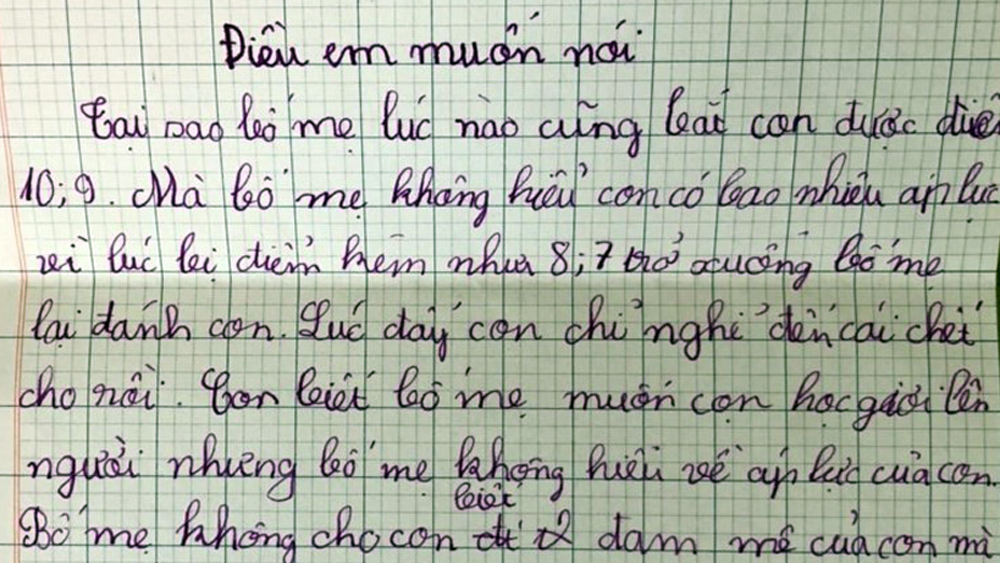 Điều em muốn nói
Tại sao bố mẹ lúc nào cũng bắt con được điể
10; 9. Mà bố mẹ không hiểu con có bao nhiêu áp lực
vì lúc bị điểm kém như 8; 7 trở xuống bố mẹ
lại đánh con. Lúc đấy con chỉ nghĩ đến cái chết
cho rồi. Con biết bố mẹ muốn con học giỏi lên
người nhưng bố mẹ không hiểu về áp lực của con.
biết
Bố mẹ không cho con đam mê của con mà